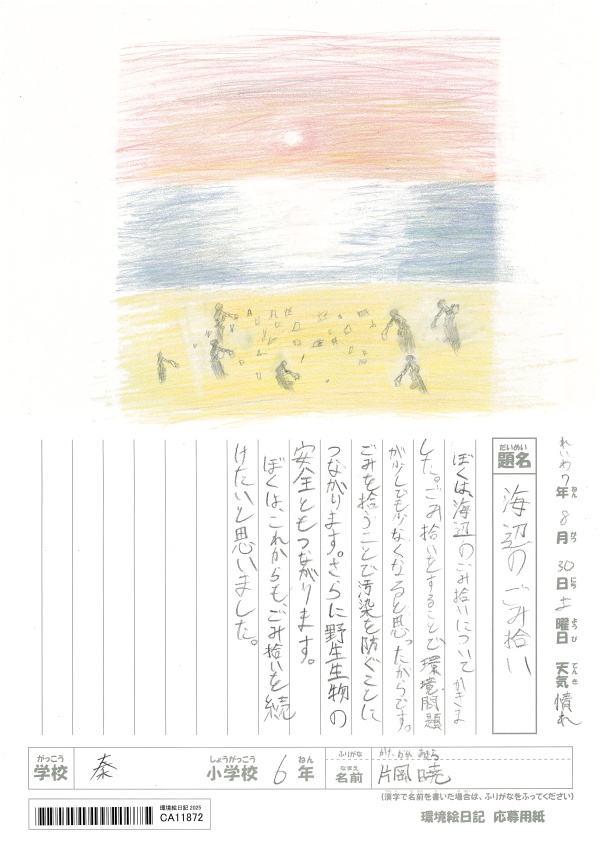 れいわ7年 8月 30日 土曜日 天気 晴れ
ねん がつ にち ようび てんき
だいめい
題名
海辺のごみ拾い
ぼくは、海辺のごみ拾いについてかきま
した。ごみ拾いをすることで環境問題
が少しでも少なくなると思ったからです。
ごみを拾うことで汚染を防ぐことに
つながります。さらに野生生物の
安全ともつながります。
ぼくは、これからも、ごみ拾いを続
けたいと思いました。
がっこう しょうがっこう ねん
学校 秦 小学校 6年
ふりがな かたおか あきら
なまえ
名前 片岡 暁
(漢字で名前を書いた場合は、ふりがなをふってください)
環境絵日記 応募用紙
環境絵日記 2025
CA11872